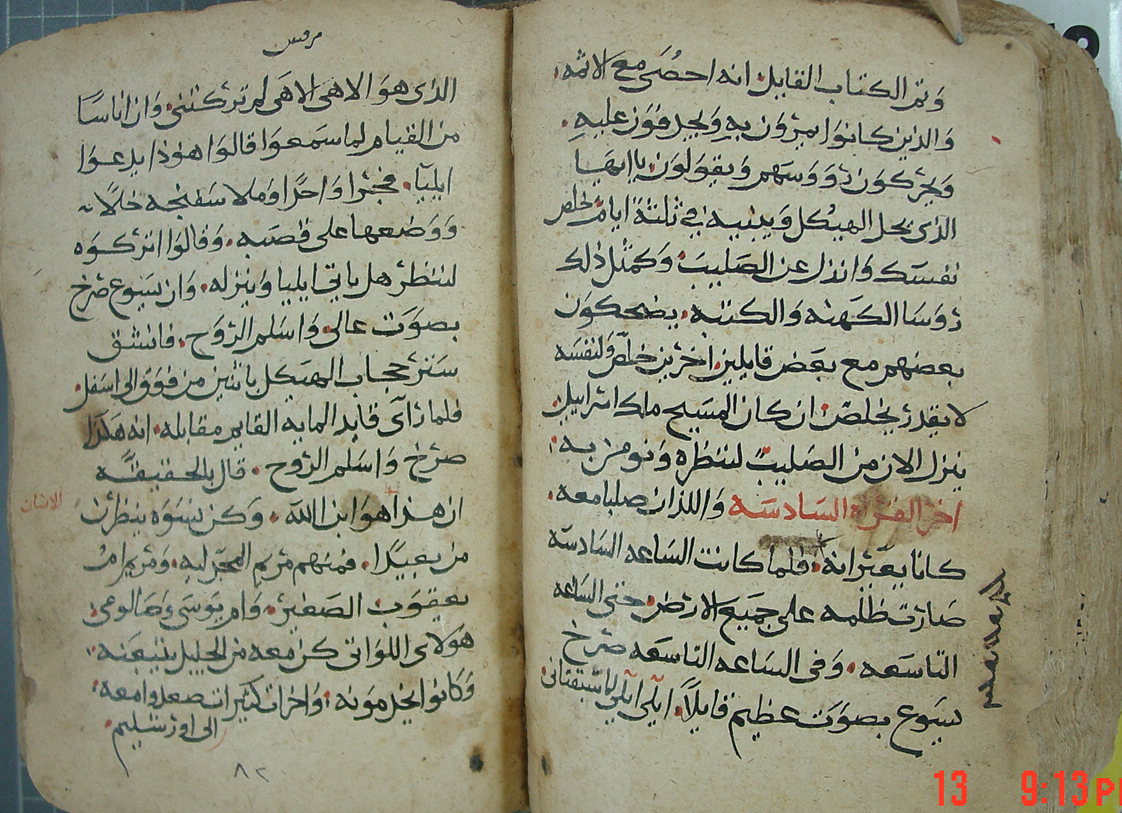 وتم الكتاب القايل انه احصى مع الاثمه.
والذين كانوا يمرون به ويجدفون عليه.
ويحركون رووسهم ويقولون ياايها
الذى يحل الهيكل ويبنيه في ثلثة ايام خلص
نفسك وانزل عن الصليب وكمثل ذلك
روسا الكهنه والكتبه. يضحكون
بعضهم مع بعض قايلين اخرين خلص ولنفسه
لا يقدر يخلص: ان كان المسيح ملك اسراييل
ينزل الان من الصليب لننظره ونومن به:
اخر القراه السادسه واللذان صلبا معه.
كانا يعيرانه: فلما كانت الساعه السادسه
صارت ظلمه على جميع الارض حتى الساعه
التاسعه. وفى الساعه التاسعه صرخ
يسوع بصوت عظيم قايلاً. ايلي ايلي
مرقس
الذى هو الاهى الاهى لم تركتنى. وان اناسًا
من القيام لما سمعوا قالوا هوذا يدعوا
ايليا. فجرى واحدًا وملا سفنجه خلاً
ووضعها على قصبه. وقالوا اتركوه
لننظر هل ياتي ايليا وينزله. وان يسوع صرخ
بصوت عالى واسلم الروح. فانشق
ستر حجاب الهيكل باثنين من فوق الى اسفل.
فلما راى قايد المايه القايم مقابله. انه هكذا
صرخ واسلم الروح. قال بالحقيقه
ان هذا هو ابن الله. وكن نسوه ينظرن
من بعيدًا. فمنهم مريم المجدليه. ومريم ام
يعقوب الصغير. وام يوسى وصالومى.
هولاى اللواتى كن معه من الجليل يتبعنه.
وكانوا يخدمونه: واخرات كثيرات صعدوا معه:
الى اورشليم.
٨٢